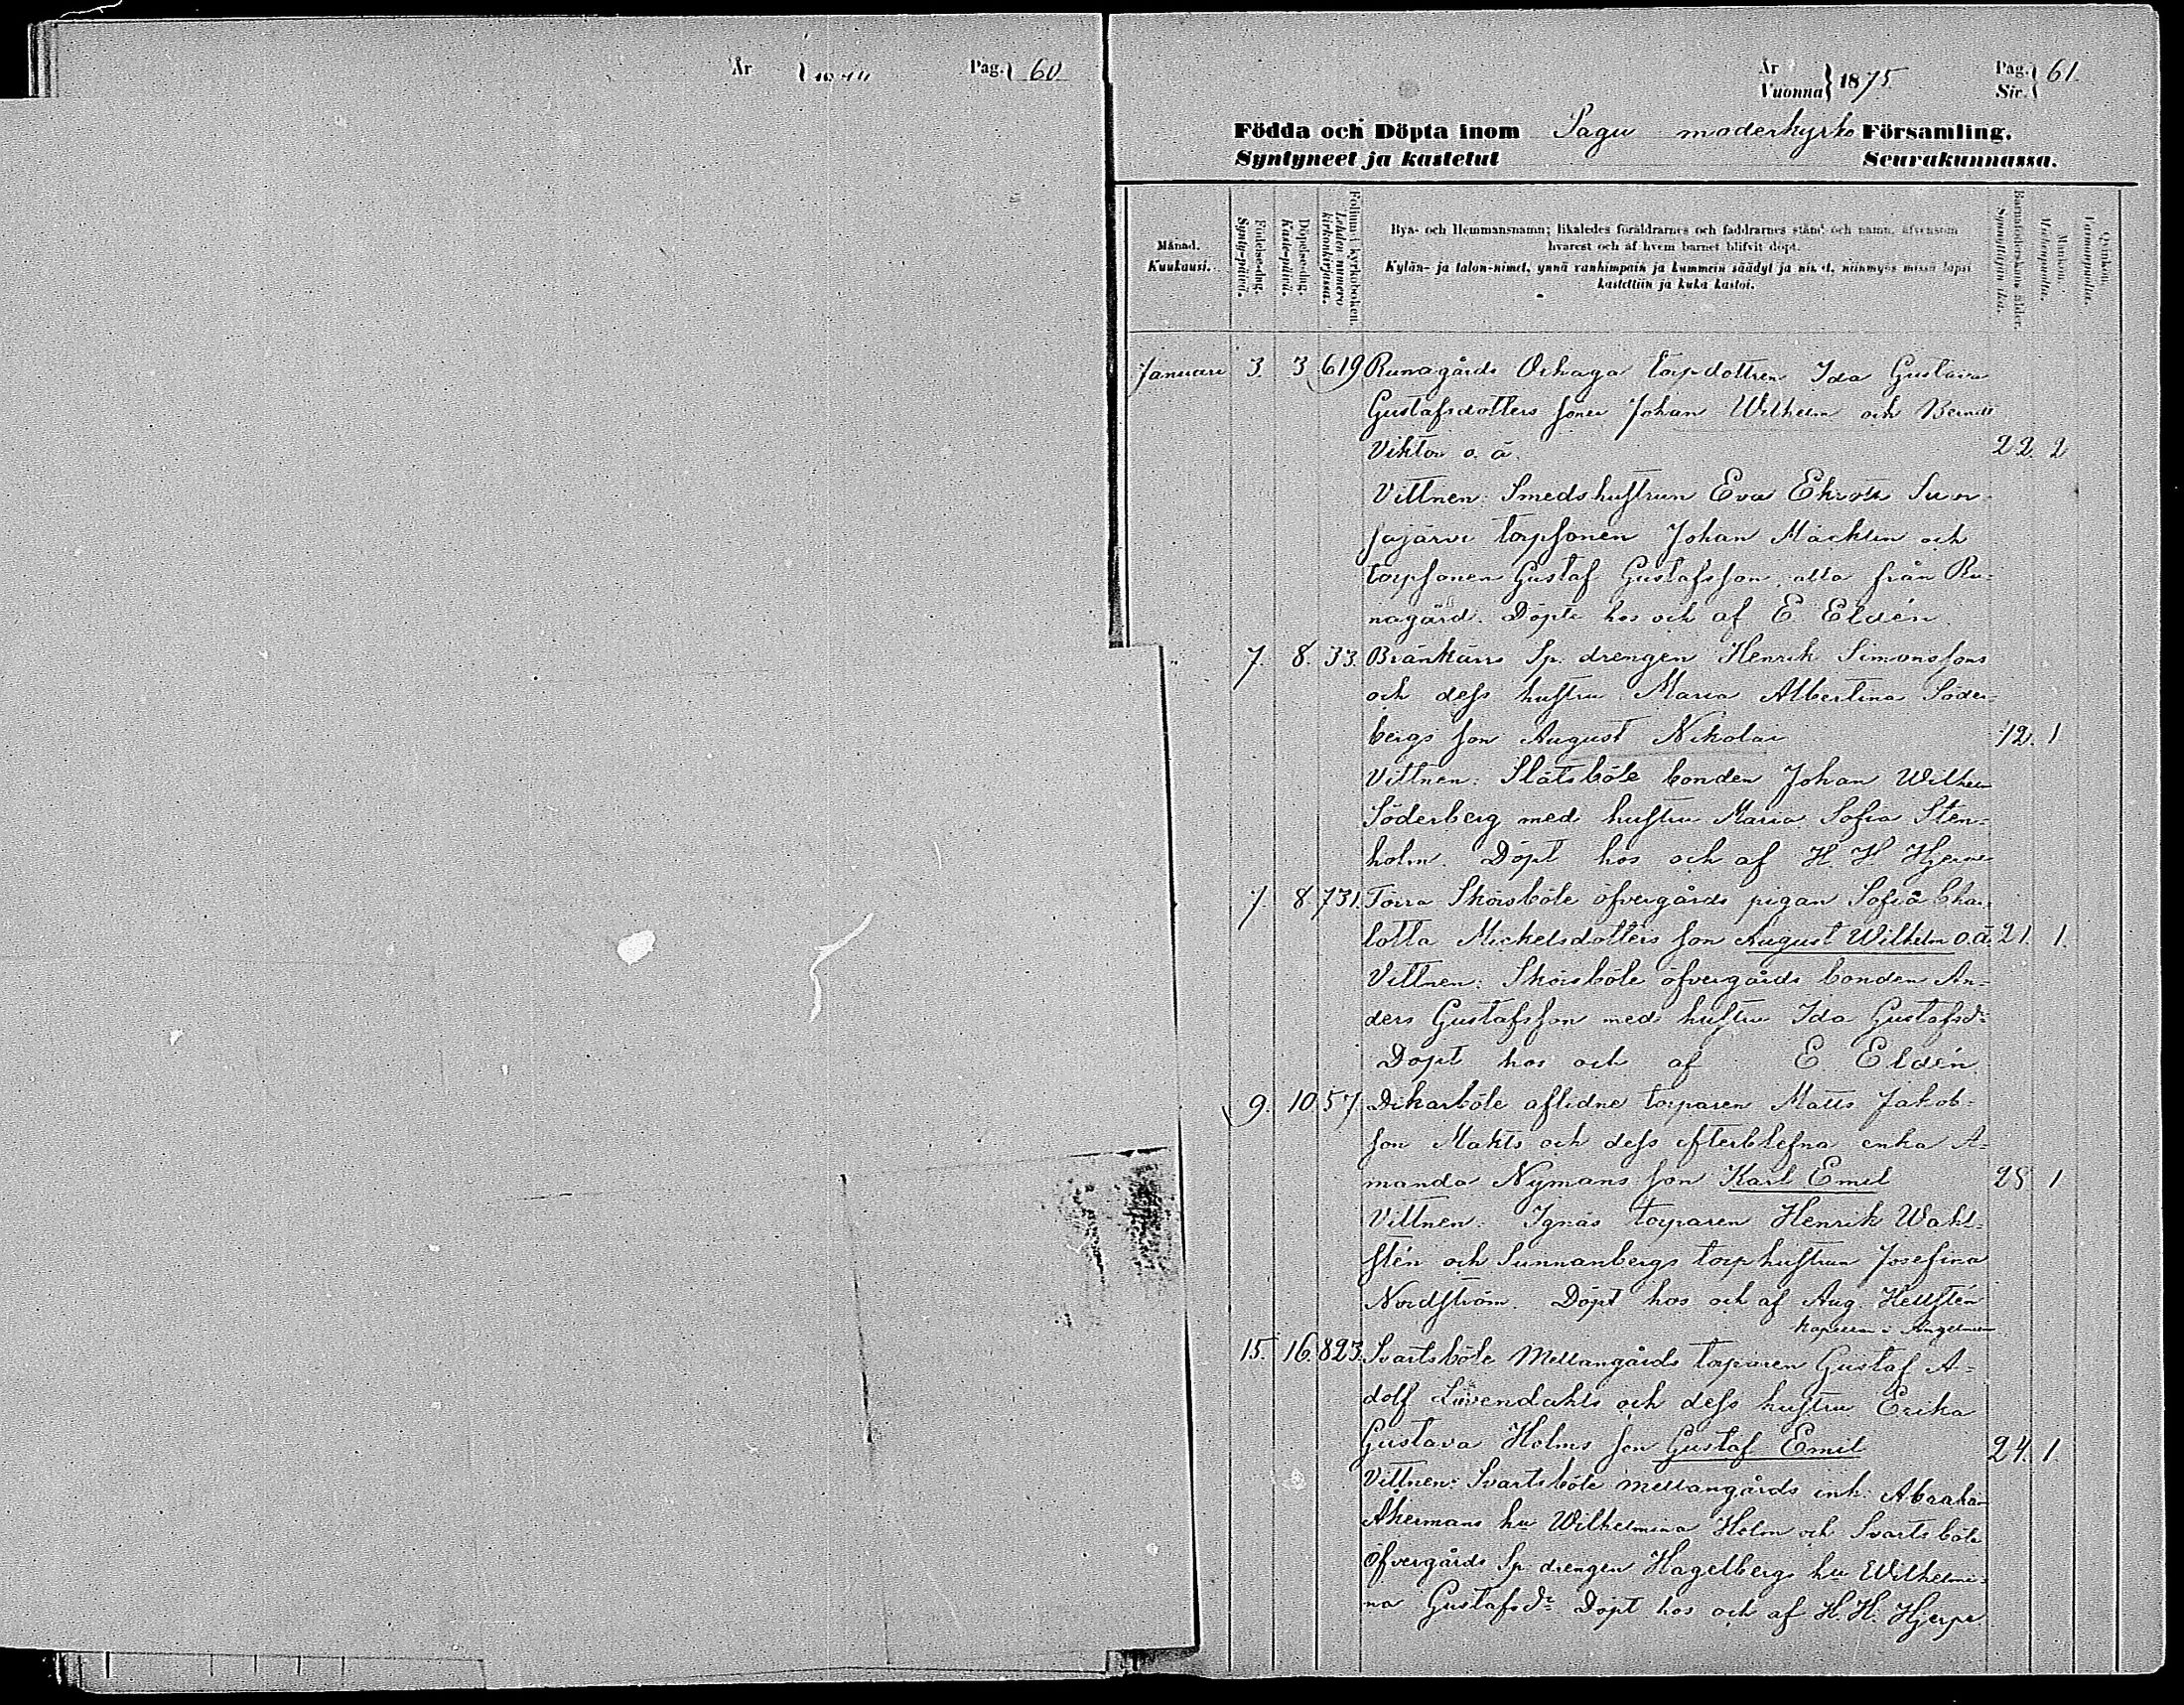 År Pag. 60
År Vuonna 1875. Pag. Siv. 61
Födda och Döpta inom Sagu moderkyrko Församling.
Syntyneet ja kastetut Seurakunnassa.
Månad.
Kuukausi.
Födelse-dag.
Synty-päivä.
Döpelse-dag.
Kaste-päivä.
Folium i kyrkoboken.
Lehden numero kirkonkirjassa.
Bya- och Hemmansnamn; likaledes föräldrarnes och faddrarnes stånd och namn, äfvensom
hvarest och af hvem barnet blifvit döpt.
Kylän- ja talon-nimet, ynnä vanhimpain ja kummein säädyt ja nimet, niinmyös missä lapsi
kastettiin ja kuka kastoi.
Barnaföderskans ålder.
Synnyttäjän ikä.
Mankön.
Miehenpuolta.
Qvinkön.
Vaimonpuolta.
Januari 3. 3 619 Runagårds torpdottren Ida Gustava
Gustafsdotters söner Johan Wilhelm och Berndt
Viktor o. ä. 22. 2
Vittnen: Smedshustrun Eva Ekroth Suon
sajärvi torpsonen Johan Mäcklin och
torpsonen Gustaf Gustafsson, alla från Ru-
nagård. Döpte hos och af E. Eldén.
7. 8. 33. Bränkärrs Sp. drengen Henrik Simonssons
och dess hustru Maria Albertina Söder-
bergs son August Nikolai 42. 1
Vittnen: Slätsböle bonden Johan Wilhelm
Söderberg med hustru Maria Sofia Sten-
holm. Döpt hos och af H. H Hjerpe
7. 8 731. Torra Skörsböle öfvergårds pigan Sofia Char-
lotta Mickelsdotters son August Wilhelm o.ä. 21. 1.
Vittnen: Skörsböle öfvergårds bonden An-
ders Gustafsson med hustru Ida Gustafsdr
Döpt hos och af E Eldén.
9. 10 57. Dikarböle aflidne torparen Matts Jakob-
son Makts och dess efterblefna enka A-
manda Nymans son Karl Emil 28 1
Vittnen: Ignäs torparen Henrik Wahl-
stén och Sunnanbergs torphustrun Josefina
Nordström. Döpt hos och af Aug. Hellstén
kapellan i Angelniemi
15. 16. 823. Svartsböle Mellangårds torparen Gustaf A-
dolf Lövendahls och dess hustru Erika
Gustava Holms son Gustaf Emil 24. 1.
Vittnen: Svartsböle mellangårds inh. Abraham
Åkermans hu Wilhelmina Holm och Svartsböle
öfvergårds Sp. drengen Hagelbergs hu Wilhelmi-
na Gustafsdr Döpt hos och af H. H. Hjerpe